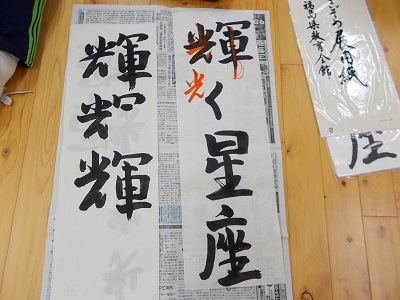 きぞめ展用紙
福島県教育会館
座
輝く星座
光
輝
輝